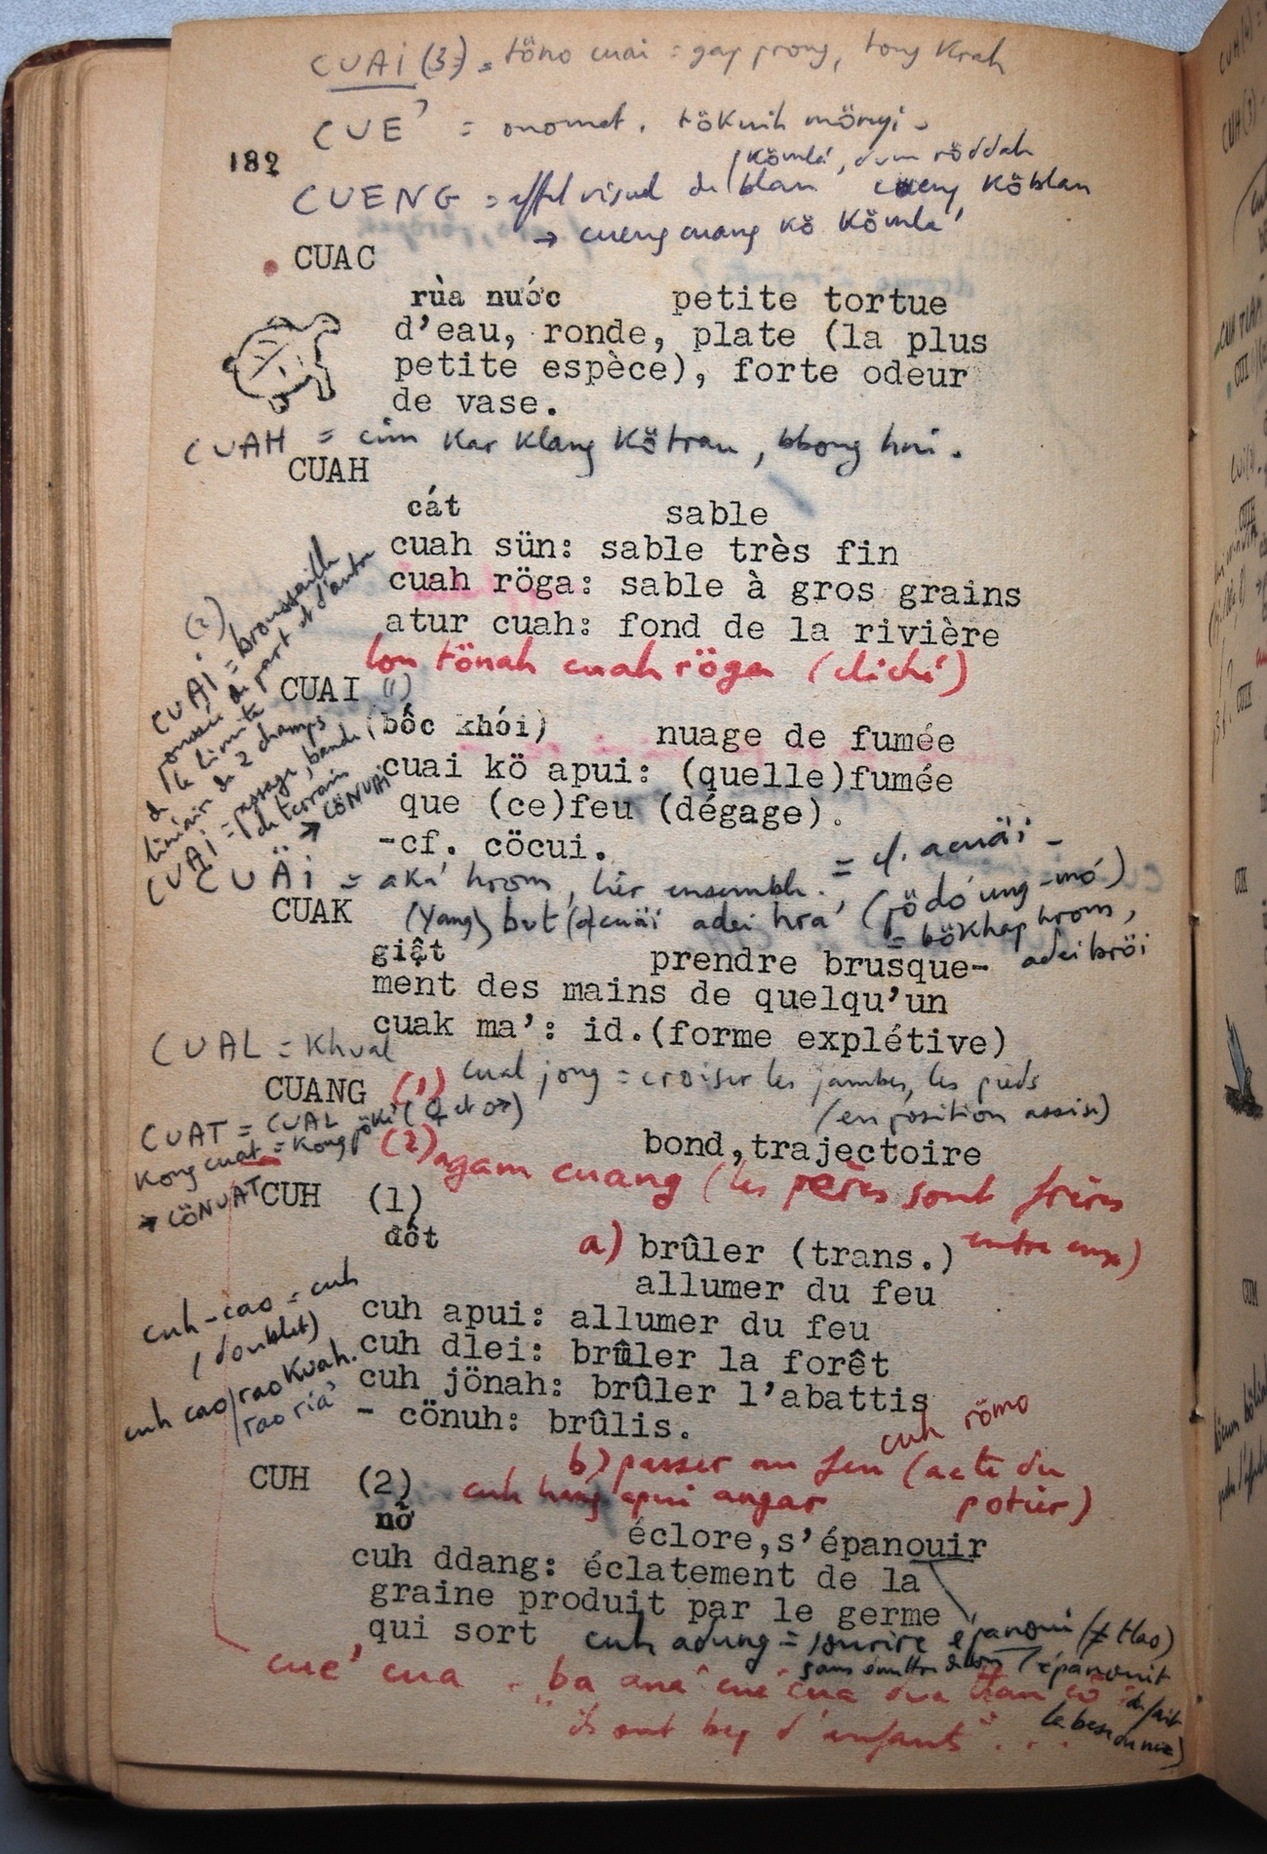 CUAI (3) = töno cuai = gap prong, tong Krah
CUE' = onomat. tökuih mönyi
182
(kömla', dum röddah
CUENG = effet visuel de blan cueng köblan
→ cueng cuang kö kömla'
CUAC
rùa nước petite tortue
d'eau, ronde, plate (la plus
petite espèce), forte odeur
de vase.
CUAH = cim Kar Klang Kötrau, bbong hui.
CUAH
cát sable
cuah sün: sable très fin
cuah röga: sable à gros grains
atur cuah: fond de la rivière
lon tönah cuah röga (cliché)
(2)
CUAI = broussaille
de part et d'autre
d' la limite
de 2 champs
CUAI = passage, bande
de terrain
→ CÖNUAI
CUAI (1)
(bốc khói) nuage de fumée
cuai kö apui: (quelle)fumée
que (ce)feu (dégage).
-cf. cöcui.
CUÄI = aka' hrom, lier ensemble. = cf. acuäi -
CUAK
(Yang) but (a)cuäi adei hra' (rödo' ung-mó)
= bökhap hrom,
adei bröi
giật prendre brusque-
ment des mains de quelqu'un
cuak ma': id.(forme explétive)
CUAL = Khual
cual jong = croiser les jambes, les pieds
(en position assise)
CUANG (1)
CUAT = CUAL
Kong cuat = Kong pöke' (♀ et ♂)
→ CÖNUAT
bond,trajectoire
(2) agam cuang (les pères sont frères
entre eux)
CUH (1)
đốt a) brûler (trans.)
allumer du feu
cuh apui: allumer du feu
cuh dlei: brûler la forêt
cuh jönah: brûler l'abattis
- cönuh: brûlis.
cuh-cao = cuh
(doublet)
cuh cao/rao Kuah.
rao ria'
cuh römo
b) passer au feu (acte du
potier)
cuh hang apui angar
CUH (2)
nở éclore,s'épanouir
cuh ddang: éclatement de la
graine produit par le germe
qui sort
cuh adung = sourire épanoui (≠ tlao)
sans émettre de son (épanouit
de fait
la base du nez)
cue' cua . ba ana' cue' cua dua
"ils ont bcp d'enfants" ...